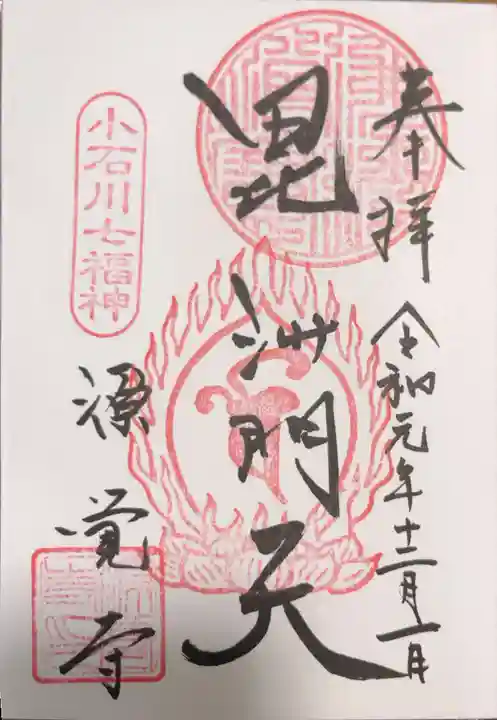 奉拝
令和元年十二月一日
毘沙門天
小石川七福神
源覚寺